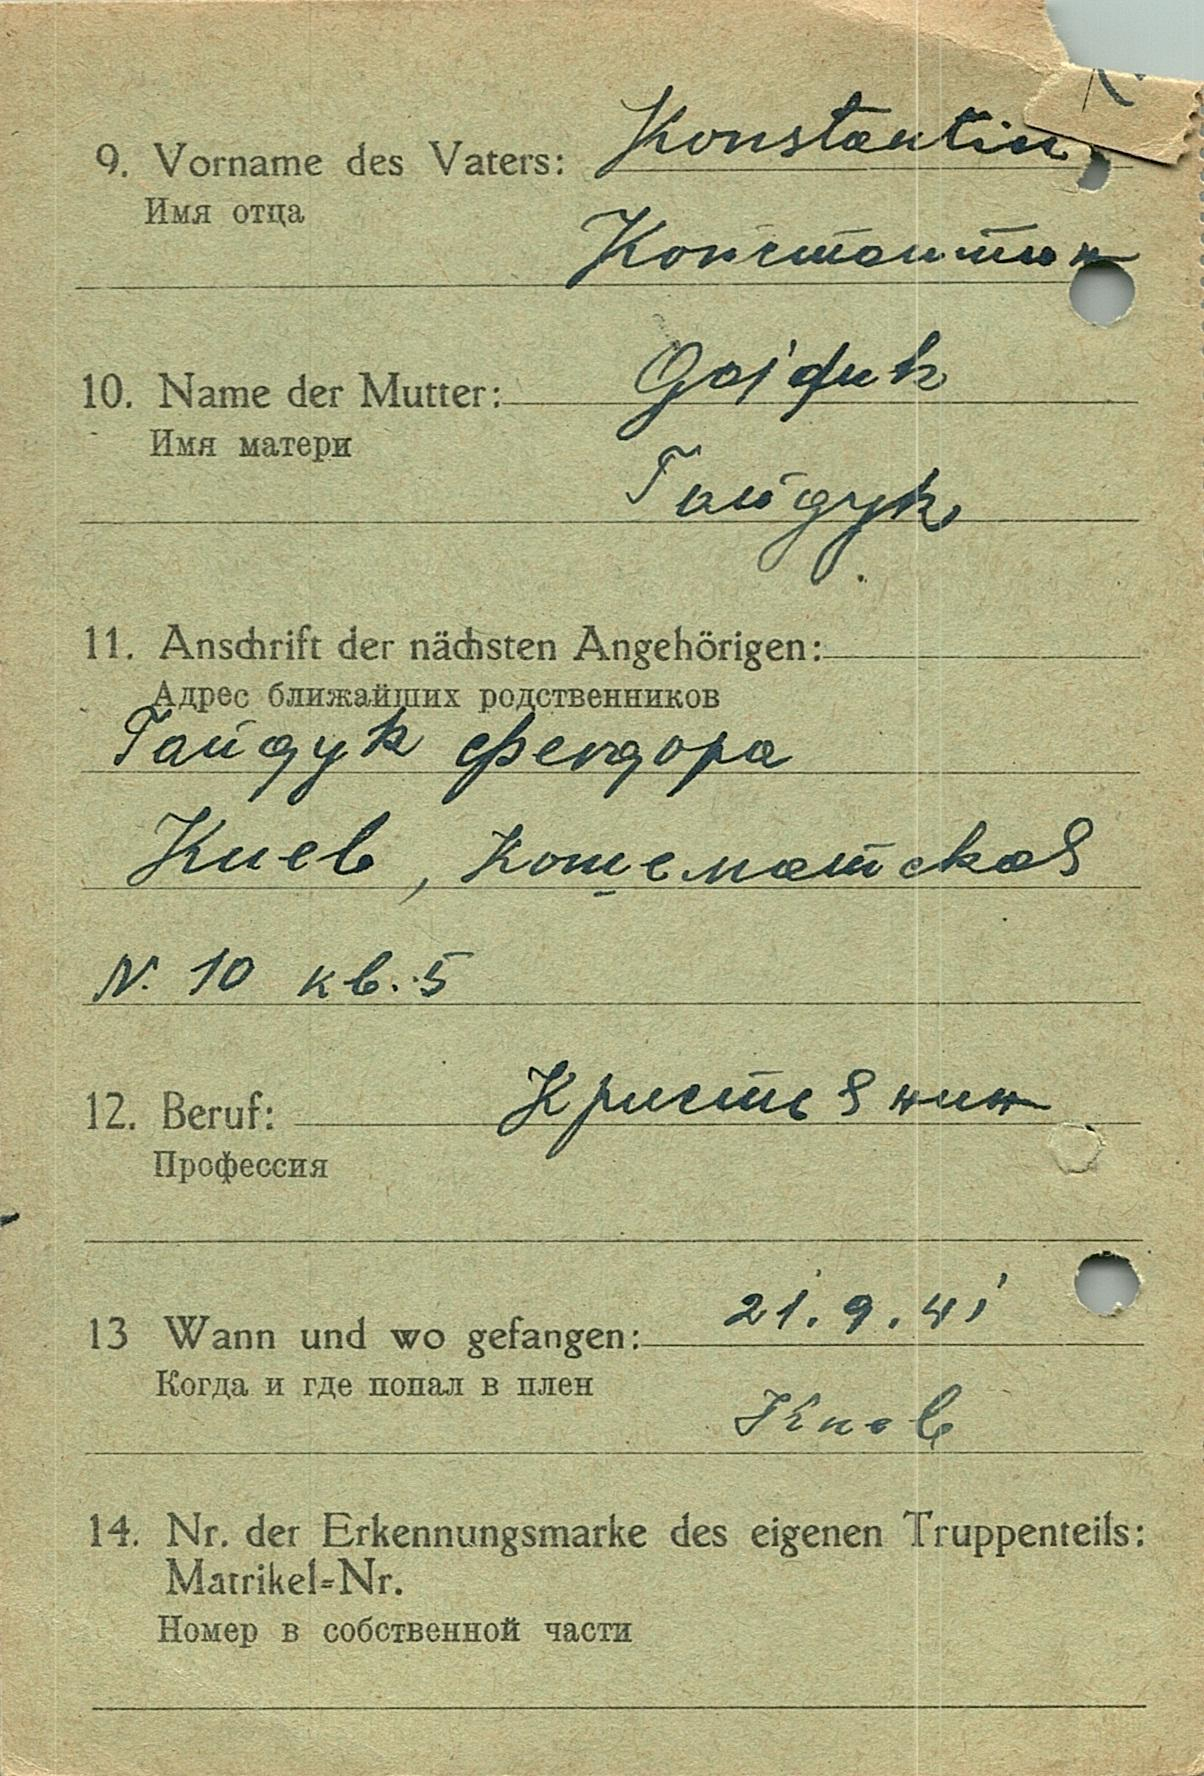 9. Vorname des Vaters: Konstantin
Имя отца
Константин
10. Name der Mutter: Gajduk
Имя матери
Гайдук
11. Anschrift der nächsten Angehörigen:
Адрес ближайших родственников
Гайдук Феодора
Киев,
N. 10 кв. 5
12. Beruf: Кристьянин
Профессия
13 Wann und wo gefangen: 21.9.41
Когда и где попал в плен
Киев
14. Nr. der Erkennungsmarke des eigenen Truppenteils:
Matrikel=Nr.
Номер в собственной части